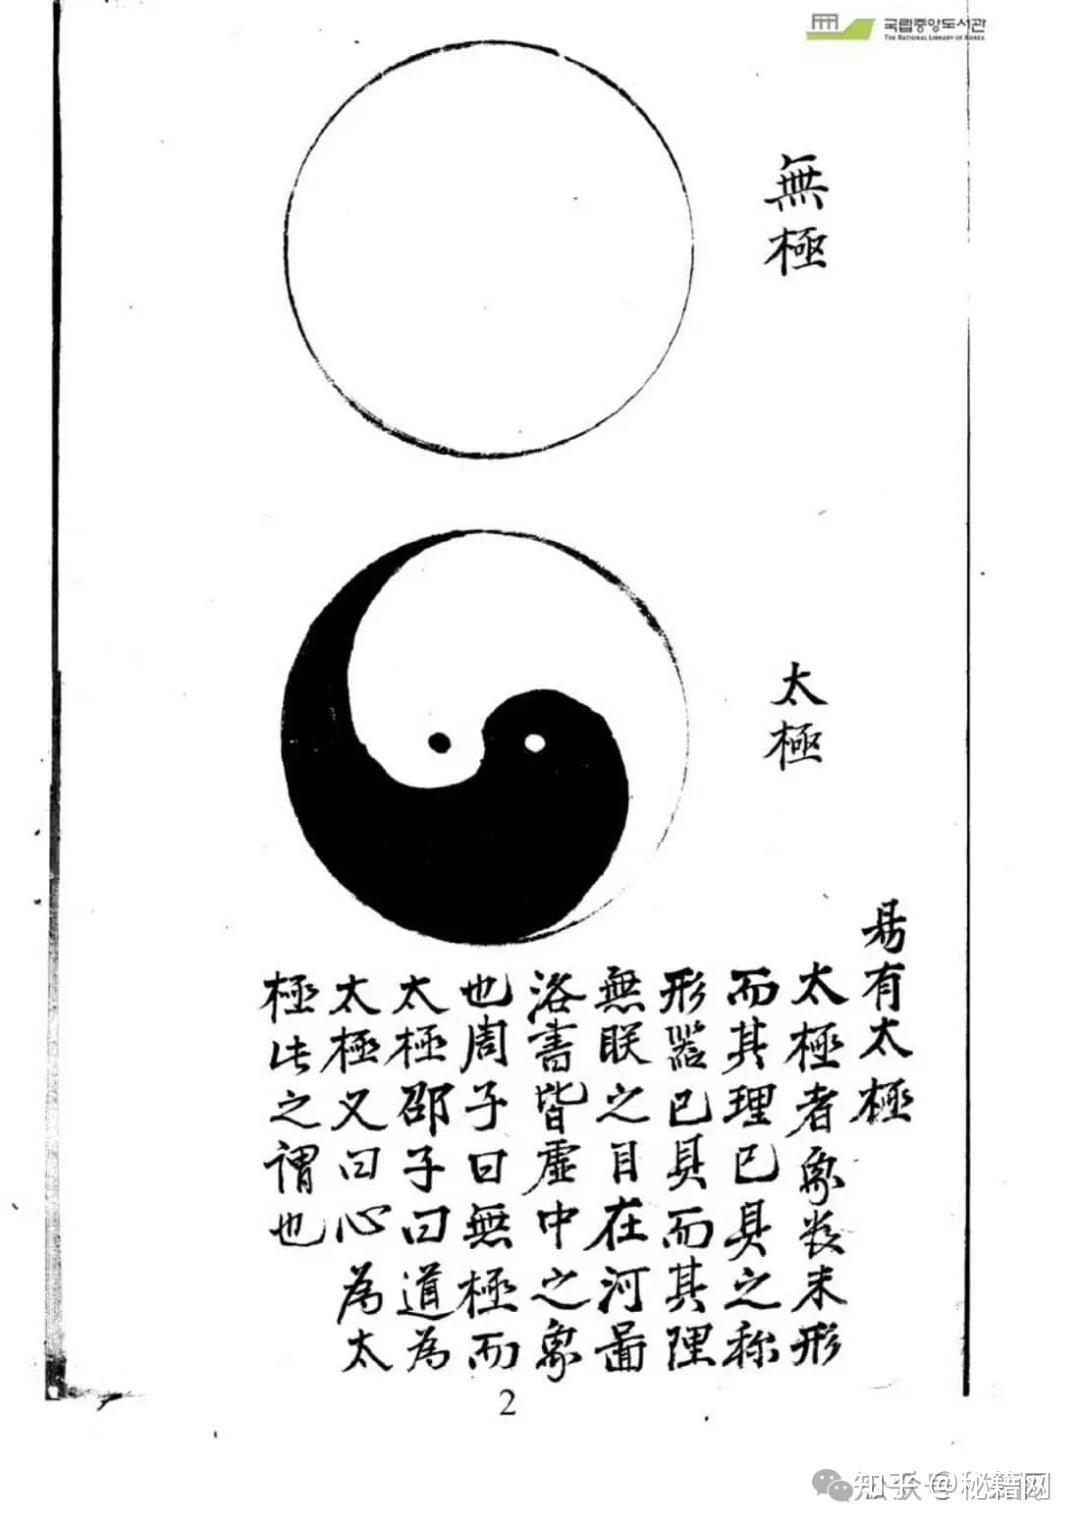 국립중앙도서관
THE NATIONAL LIBRARY OF KOREA
無極
太極
易有太極
太極者象数未形
而其理已具之称
形器已具而其理
無眹之目在河啚
洛書皆虚中之象
也周子曰無極而
太極邵子曰道為
太極又曰心為太
極此之謂也
2
知乎 @秘籍网